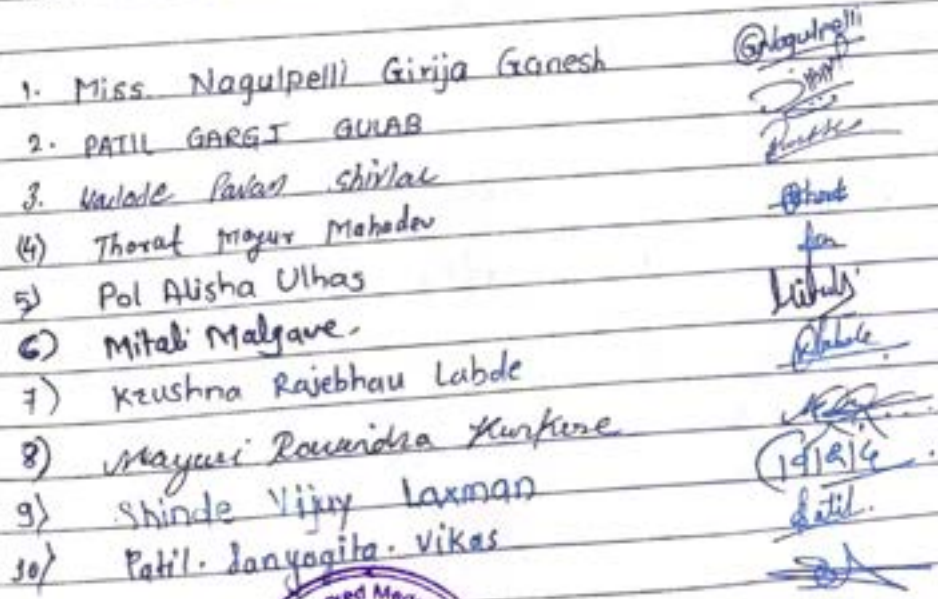 1. Miss. Nagulpelli Girija Ganesh GNagulpelli
2. PATIL GARGI GULAB
3. Pavan Shivlal
(4) Thorat Mayur Mahadev Thorat
5) Pol Alisha Ulhas
6) Mitali Malgave. Mitali
7) Krushna Rajebhau Labde
8) Mayuri Ravindra Kurkure
9) Shinde Vijay Laxman
10) Patil. Sanyogita. Vikas Patil.